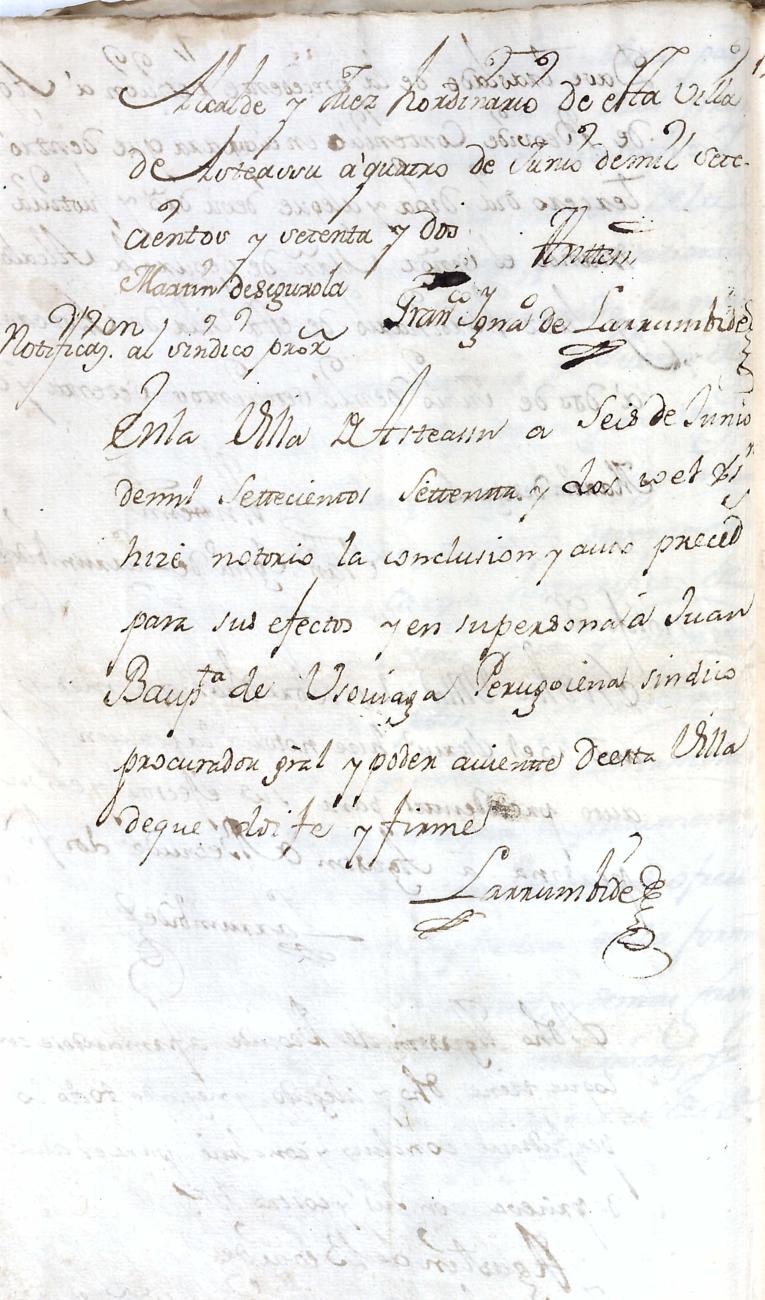 Alcalde y Juez hordinario de esta villa
de Asteassu a quatro de Junio de mil sete-
cientos y setenta y dos
Antten
Martin de Segurola
Franco Ygno de Larrumbide
Yzen
Notificaz. al sindico pror
En la Villa D Asteassu a Seis de Junio
de mil Settecientos Settentta y dos yo el
hize notorio la conclusion y auto preced
para sus efectos y en su persona a Juan
Baupta de Usoviaga Perugoiena sindico
procurador gral y poder aviente de esta Villa
de que doi fe y firme
Larrumbide